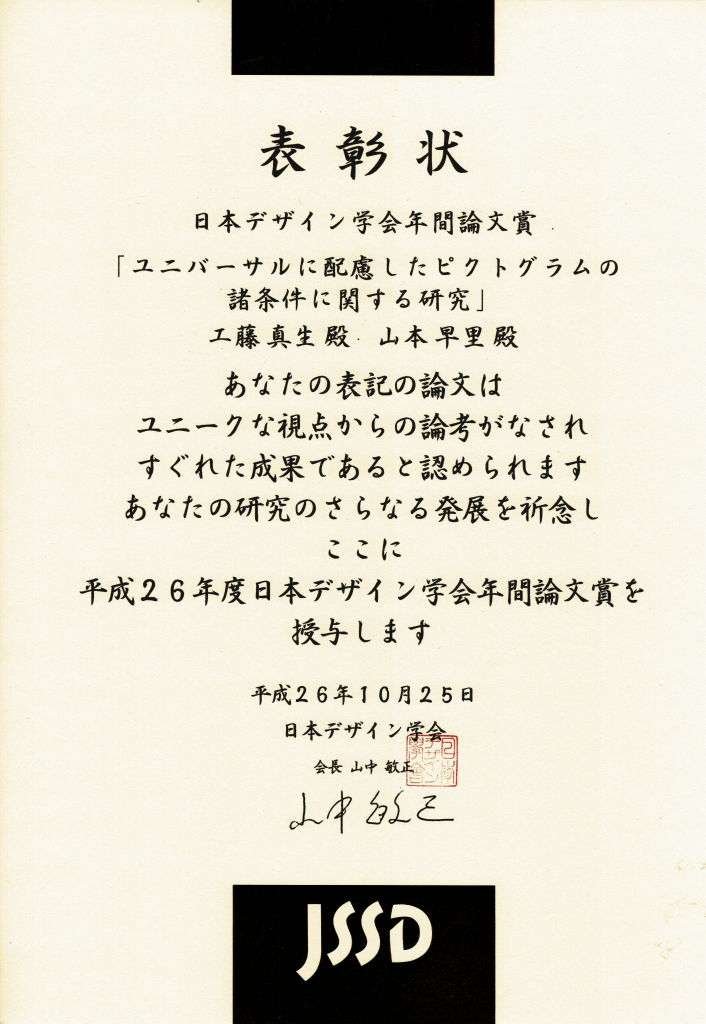 表彰状
日本デザイン学会年間論文賞
「ユニバーサルに配慮したピクトグラムの
諸条件に関する研究」
工藤真生殿 山本早里殿
あなたの表記の論文は
ユニークな視点からの論考がなされ
すぐれた成果であると認められます
あなたの研究のさらなる発展を祈念し
ここに
平成26年度日本デザイン学会年間論文賞を
授与します
平成26年10月25日
日本デザイン学会
会長 山中 敏正
日本デザイン學會
山中敏正
JSSD